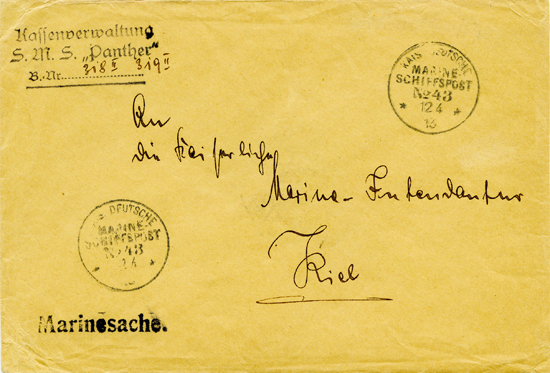 Kassenverwaltung
S. M. S. „Panther"
B.-Nr. 318 II 319 II
KAIS. DEUTSCHE
MARINE-
SCHIFFSPOST
No 43
* 12 4 *
An
die Kaiserliche
Marine-Intendantur
Kiel
DEUTSCHE
MARINE-
SCHIFFSPOST
No 43
Marinesache.